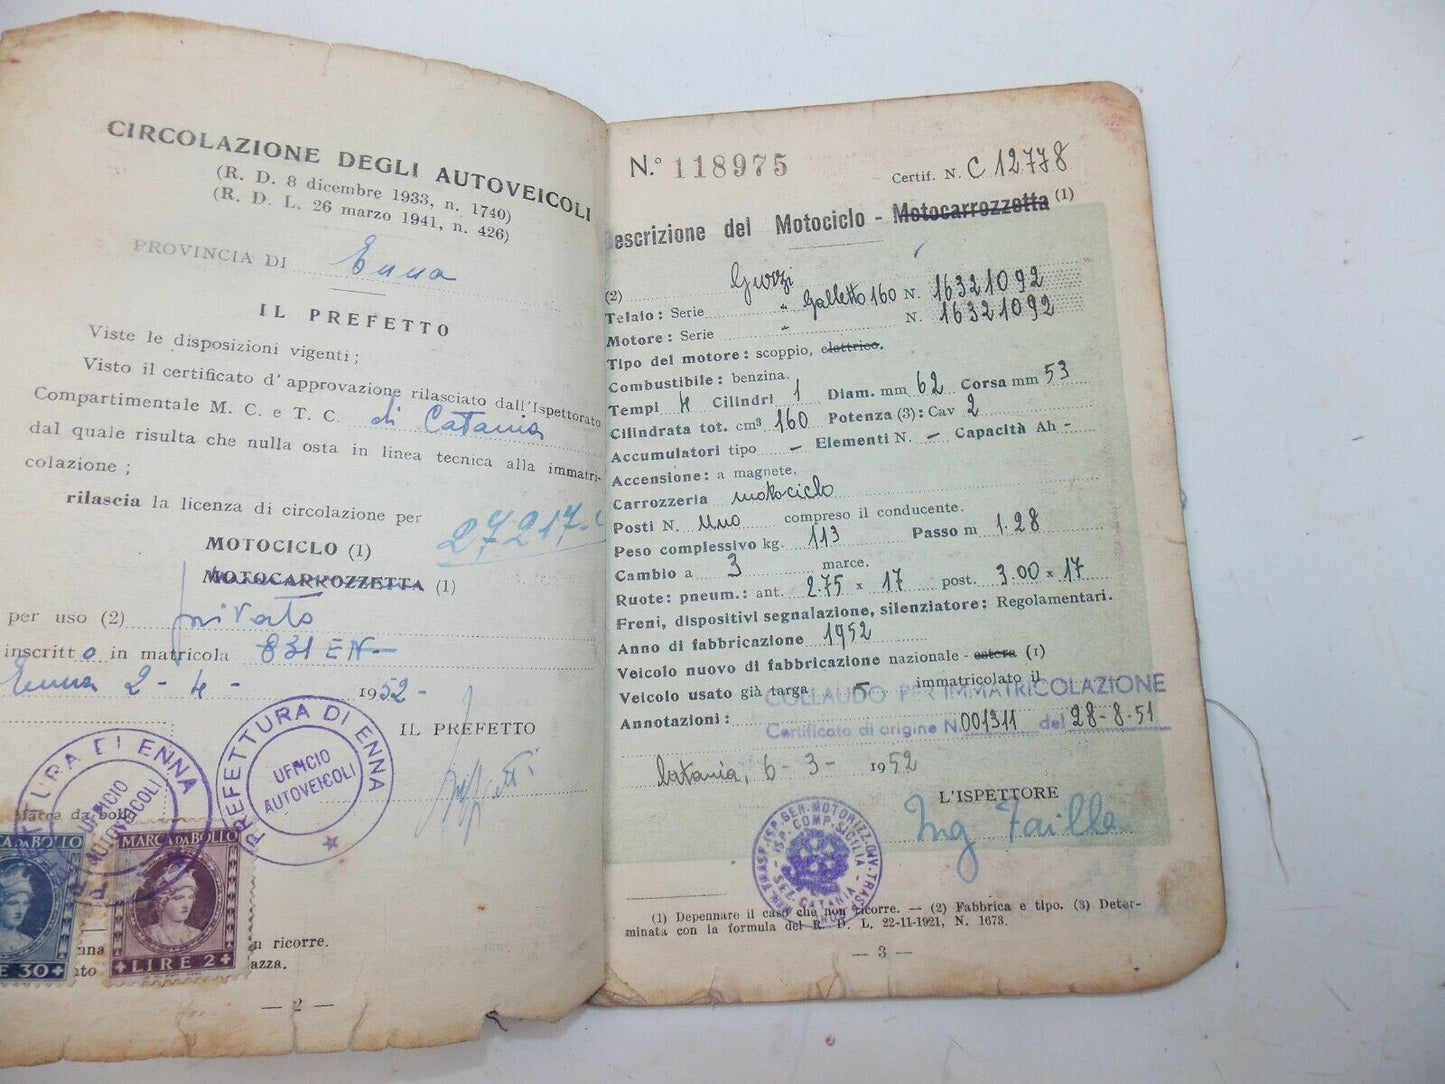 CIRCOLAZIONE DEGLI AUTOVEICOLI
(R. D. 8 dicembre 1933, n. 1740)
(R. D. L. 26 marzo 1941, n. 426)
PROVINCIA DI Enna
IL PREFETTO
Viste le disposizioni vigenti ;
Visto il certificato d' approvazione rilasciato dall'Ispettorato
Compartimentale M. C. e T. C. di Catania
dal quale risulta che nulla osta in linea tecnica alla immatri-
colazione ;
rilascia la licenza di circolazione per
27217
MOTOCICLO (1)
MOTOCARROZZETTA (1)
per uso (2) privato
inscritto in matricola 831 EN
Enna 2 - 4 - 1952 -
IL PREFETTO
PREFETTURA DI ENNA
UFFICIO
AUTOVEICOLI
TURA DI ENNA
UFFICIO
AUTOVEICOLI
Marca da bollo
CA DA BOLLO
MARCA DA BOLLO
E 30
LIRE 2
n ricorre.
azza.
— 2 —
N.° 118975
Certif. N. C 12778
Descrizione del Motociclo - Motocarrozzetta (1)
(2) Guzzi
Telaio: Serie " Galletto 160 N. 16321092
Motore: Serie " N. 16321092
Tipo del motore: scoppio, elettrico.
Combustibile: benzina.
Tempi 4 Cilindri 1 Diam. mm 62 Corsa mm 53
Cilindrata tot. cm³ 160 Potenza (3): Cav 2
Accumulatori tipo – Elementi N. – Capacità Ah –
Accensione: a magnete.
Carrozzeria motociclo
Posti N. Uno compreso il conducente.
Peso complessivo kg. 113 Passo m 1.28
Cambio a 3 marce.
Ruote: pneum.: ant. 2.75 x 17 post. 3.00 x 17
Freni, dispositivi segnalazione, silenziatore: Regolamentari.
Anno di fabbricazione 1952
Veicolo nuovo di fabbricazione nazionale - estera (1)
Veicolo usato già targa immatricolato il
COLLAUDO PER IMMATRICOLAZIONE
Annotazioni:
Certificato di origine N. 001311 del 28-8-51
Catania, 6 - 3 - 1952
L'ISPETTORE
Ing Failla
ISP. COMP. SICILIA
SEZ. CATANIA
(1) Depennare il caso che non ricorre. — (2) Fabbrica e tipo. (3) Deter-
minata con la formula del R. D. L. 22-11-1921, N. 1673.
— 3 —